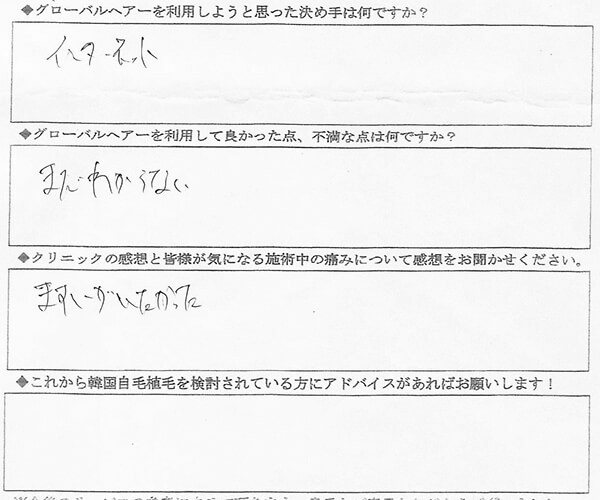 ◆グローバルヘアーを利用しようと思った決め手は何ですか？
インターネット
◆グローバルヘアーを利用して良かった点、不満な点は何ですか？
まだわからない
◆クリニックの感想と皆様が気になる施術中の痛みについて感想をお聞かせください。
ますいがいたかった
◆これから韓国自毛植毛を検討されている方にアドバイスがあればお願いします！